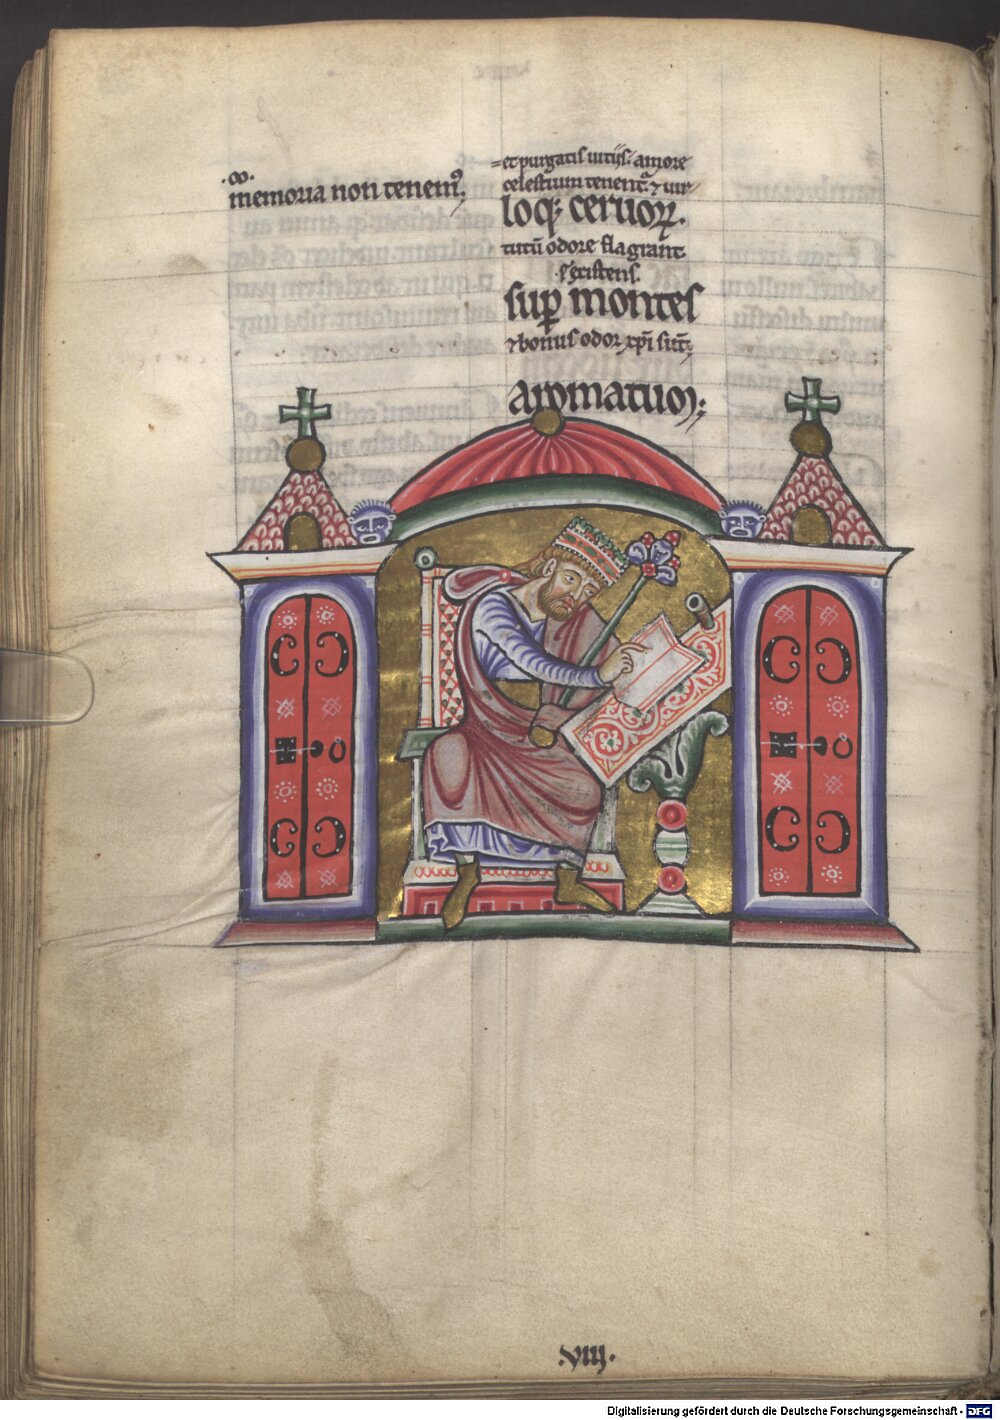 .ꝏ.
memoria non tenemꝰ.
=et purgatis uitijs. amore
celestium tenent̃. ⁊ uir
loq; ceruoꝝ.
tutũ odore flagrant.
sup̱ montes
⁊ bonus odor xp̃i sũt;
aromatum;
.VIIJ.
Digitalisierung gefördert durch die Deutsche Forschungsgemeinschaft - DFG